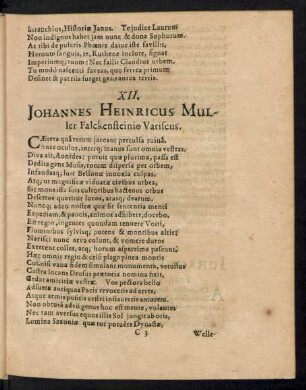 Strauchius, Historiæ Janus. Te judice Laurum
Non indignos habet jam nunc & dona Sophorum.
At tibi de poteris Phœnix datur iste favillis,
Heroum sanguis, te, Ruthene inclute, signat
Imperiumq; tuum: Nec fallit Claudius urbem.
Tu modò nascenti faveas, quo ferrea primum
Desinet & patriis surget gens aurea terris.
XII.
JOHANNES HEINRICUS MUL-
ler Falckensteinio Variscus.
Cætera quâ rerum jaceant perculsa ruinâ.
Cunas oculos, interq; manus sunt omnia vestras,
Diva ait, Aonides: potuit quæ plurima, passa est
Dedita gens Musis, totum dispersa per orbem,
Infandasq; luit Bellonæ innoxia culpas.
Atq; ut magnificæ viduatæ civibus urbes,
Sic monstratis suis cultoribus hactenus orbus
Desertos queritur lucos, arasq; dearum.
Nuncq; adeò nostræ quæ sit sententia menti
Expediam, & paucis, animos adhibete, docebo.
Est regio, ingentes quondam tenuere Voiti,
Fluminibus sylvisq; potens & montibus altis:
Narisci nunc arva colunt, & vomere duros
Exercent colles, atq; horum asperrima pascunt.
Hæc omnis regio & celsi plaga pinea montis
Castra locans Drusus præteria nomina fixit,
Cedat amicitiæ vestræ. Vos pectora bello
Adsueta antiquas Pacis revocetis ad artes,
Atque armis positis vestri instauretis amorem.
Non obtusa adeò genus hoc estmontanum, volantes
Nec tam aversus equos illis Sol jungit ab oris,
Lumina Saxoniæ quæ tot potuêre Dynastæ,
C 3 Welle-